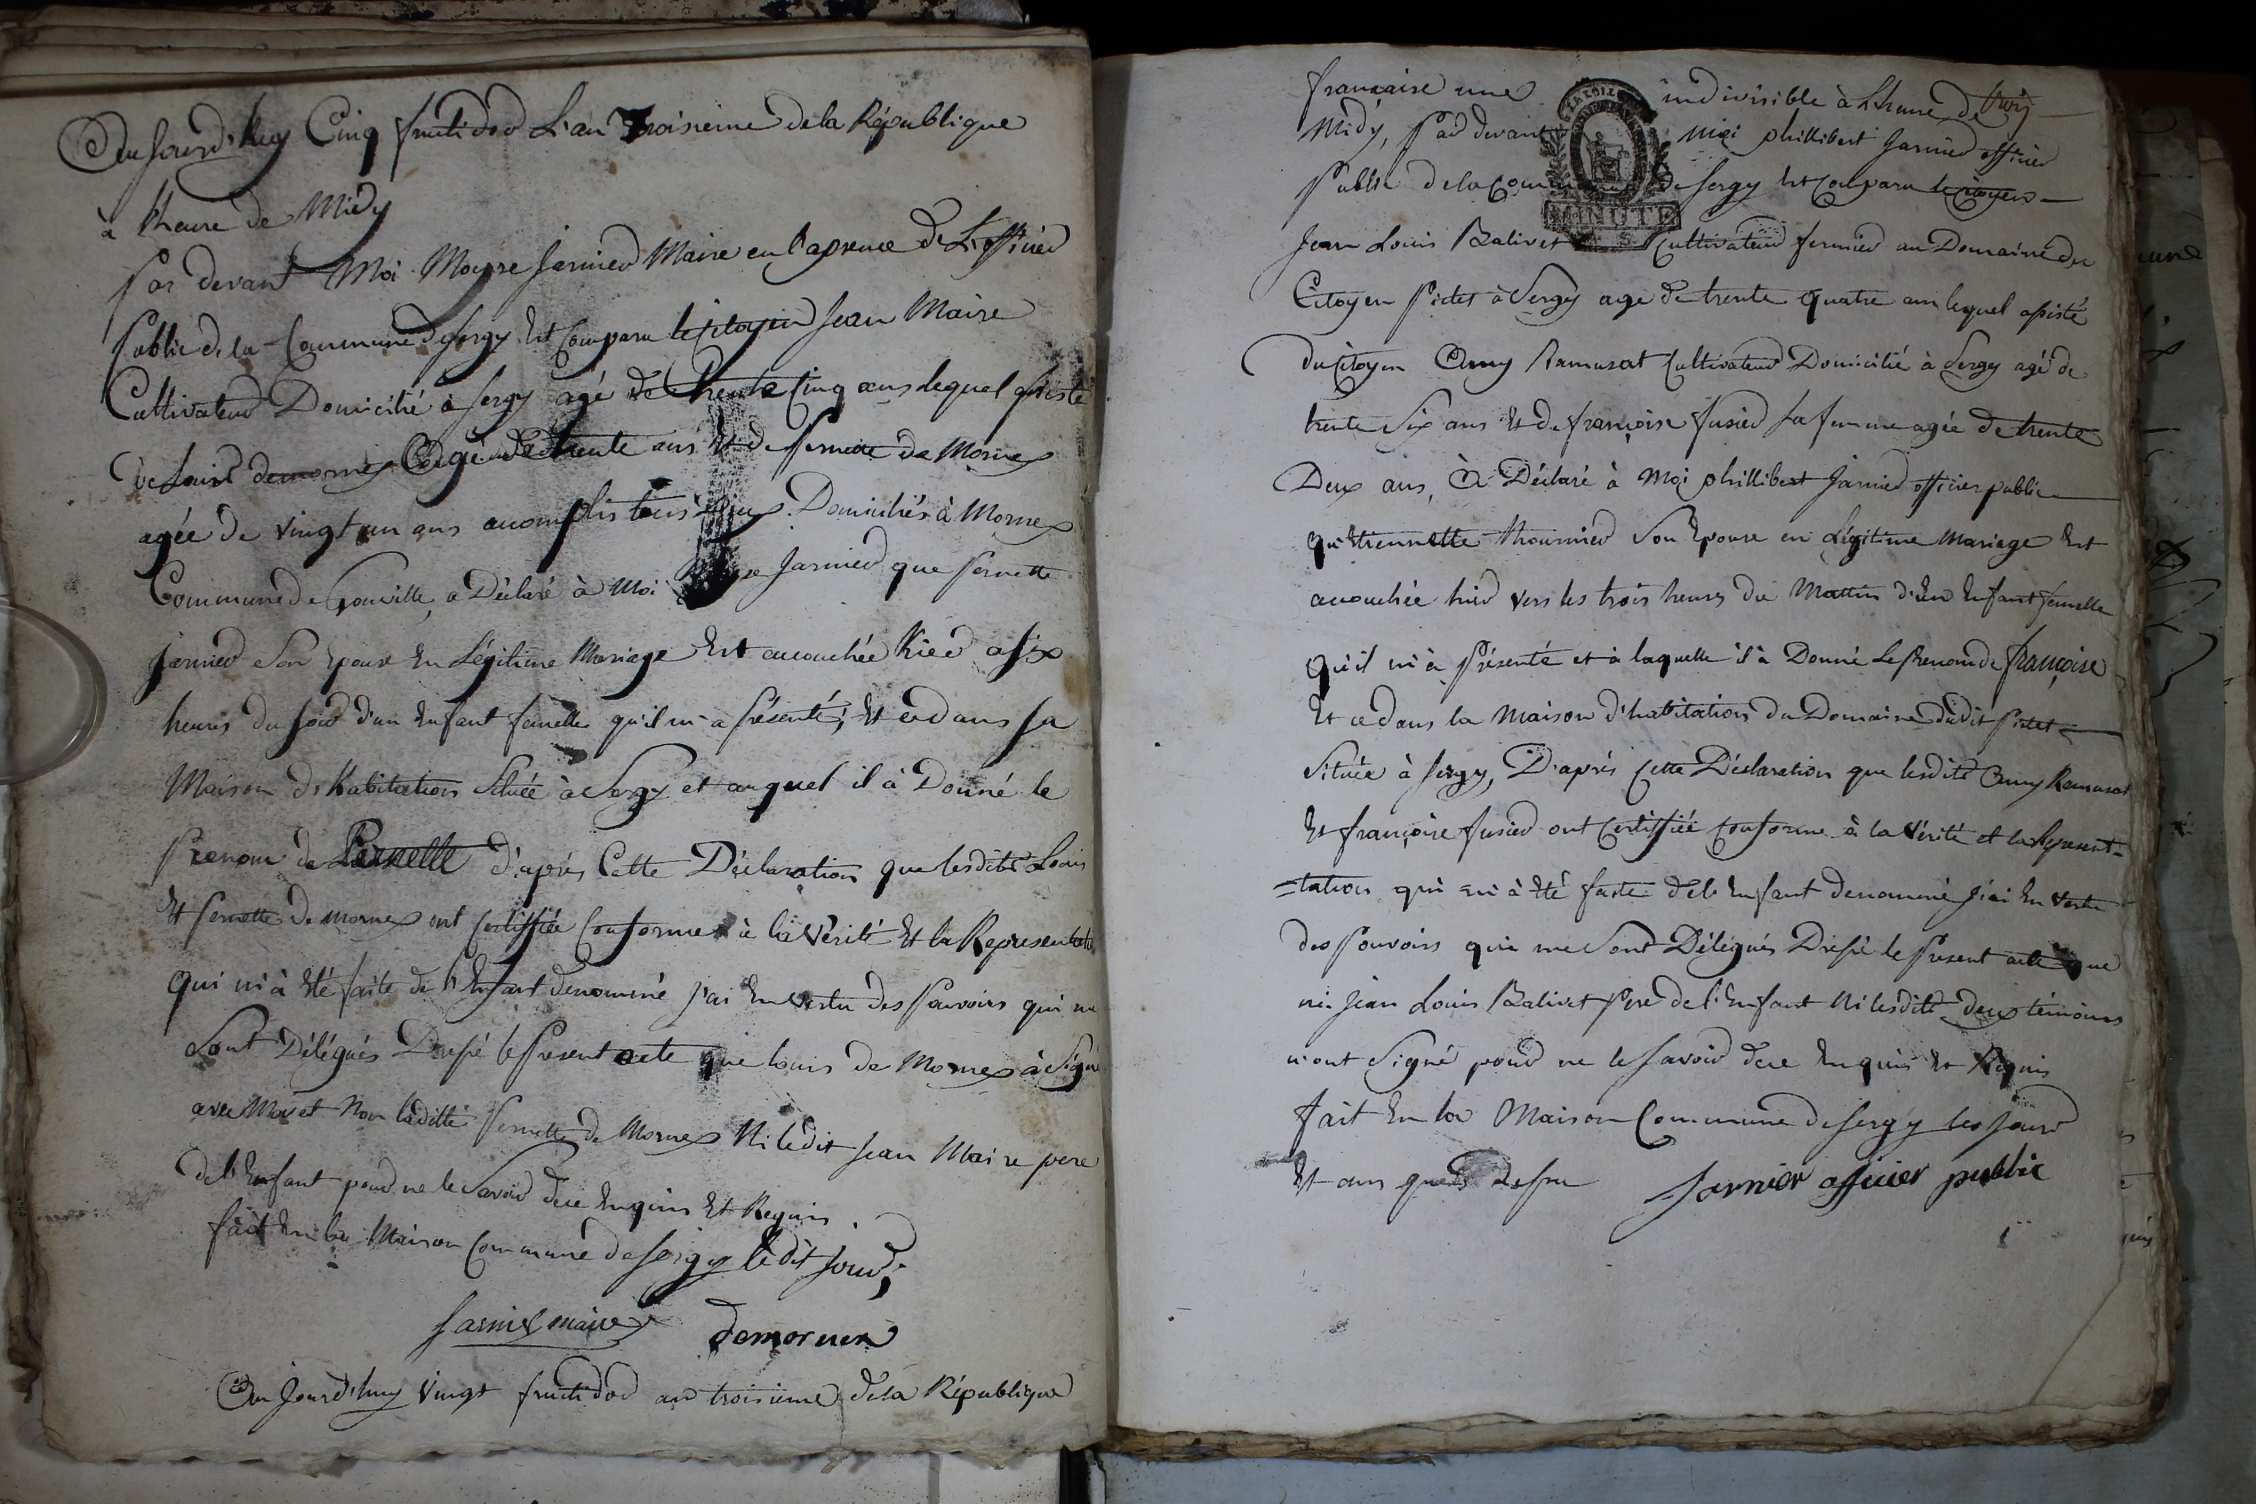 Aujourd'huy Cinq fructidor L'an Troisieme de la République
à l'heure de Midy
Par devant Moi Moyse Jarnier Maire en l'absence de L'officier
Public de la Commune de Sergy Est Comparu le Citoyen Jean Maire
Cultivateur Domicilié à Sergy agé de trente Cinq ans lequel assisté
de Louis demornex agé de trente ans Et de Pernette de Mornex
agée de vingt un ans accomplis tous deux Domiciliés à Mornex
Commune de a Déclaré à Moi Jarnier que Pernette
Jarnier Son Epouse En Légitime Mariage Est accouchée hier a six
heures du soir d'un Enfant femelle qu'il m'a présenté, Et ce dans sa
Maison d'habitation Située à Sergy et auquel il à Donné le
Prenom de Pernette d'après Cette Déclaration que lesdits Louis
Et Pernette de mornex ont Certiffiée Conforme à la Vérité Et la Representation
qui m'à Eté faite de l'Enfant denommé j'ai En vertu des Pouvoirs qui me
Sont Délégués Dressé le Present acte que Louis de Mornex à Signé
avec Moi et Non laditte Pernette de Mornex Ni ledit Jean Maire pere
de l'Enfant pour ne le Savoir de ce Enquis Et Requis
fait En la Maison Commune de Sergy ledit jour,
Jarnier maire demornex
Aujourd'huy Vingt fructidor an troisieme de la République
française une indivisible à L'heure de trois
Midy, Par devant moi phillibert Jarnier officier
Public de la Commune de Sergy Est Comparu le Citoyen
MINUTE
Jean Louis Balivet Cultivateur fermier au Domaine du
Citoyen Pictet à Sergy agé de trente quatre ans lequel assisté
du Citoyen Amy Ramusat Cultivateur Domicilié à Sergy agé de
trente Six ans Et de françoise fusier sa femme agée de trente
Deux ans, à Déclaré à Moi phillibert Jarnier officier public
qu'Etiennette thournier Son Epouse en Légitime Mariage Est
accouchée hier vers les trois heures du Mattin d'un Enfant femelle
qu'il m'à Présenté et à laquelle il à Donné le Prenom de françoise
Et ce dans la Maison d'habitation du Domaine dudit Pictet
Située à Sergy, D'après Cette Déclaration que lesdits Amy Ramusat
Et françoise fusier ont Certiffiée Conforme à la Vérité et la Represent-
=tation qui m'à Eté faite de l'Enfant denommé j'ai En vertu
des Pouvoirs qui me Sont Délégués Dressé le Present acte que
ni Jean Louis Balivet Pere de l'Enfant Ni lesdits deux témoins
n'ont Signé pour ne le Savoir de ce Enquis Et Requis
fait En la Maison Commune de Sergy les jour
Et ans que dessus Jarnier officier public